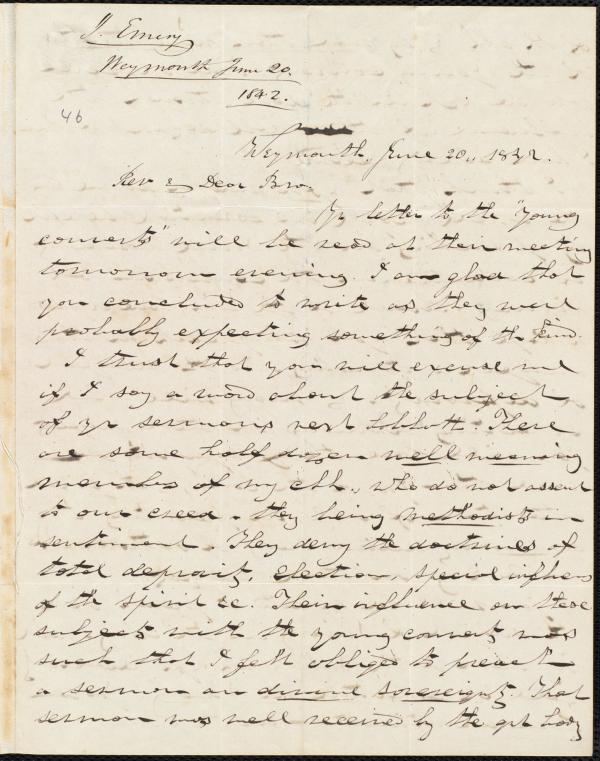 J. Emery
Weymouth June 20.
1842.
46
Weymouth, June 20,, 1842.
Rev & Dear Bro.
Yr letter to the "young
converts" will be read at their meeting
tomorrow evening. I am glad that
you concluded to write as they were
probably expecting something of the kind.
I trust that you will excuse me
if I say a word about the subject
of yr sermons next Sabbath. There
are some half dozen well meaning
members of my chh., who do not assent
to our creed - they being methodists in
sentiment. They deny the doctrines of
total depravity, election, special influence
of the spirit &c. Their influence on these
subjects with the young converts was
such that I felt obliged to preach
a sermon on divine sovereignty. That
sermon was well received by the grt body